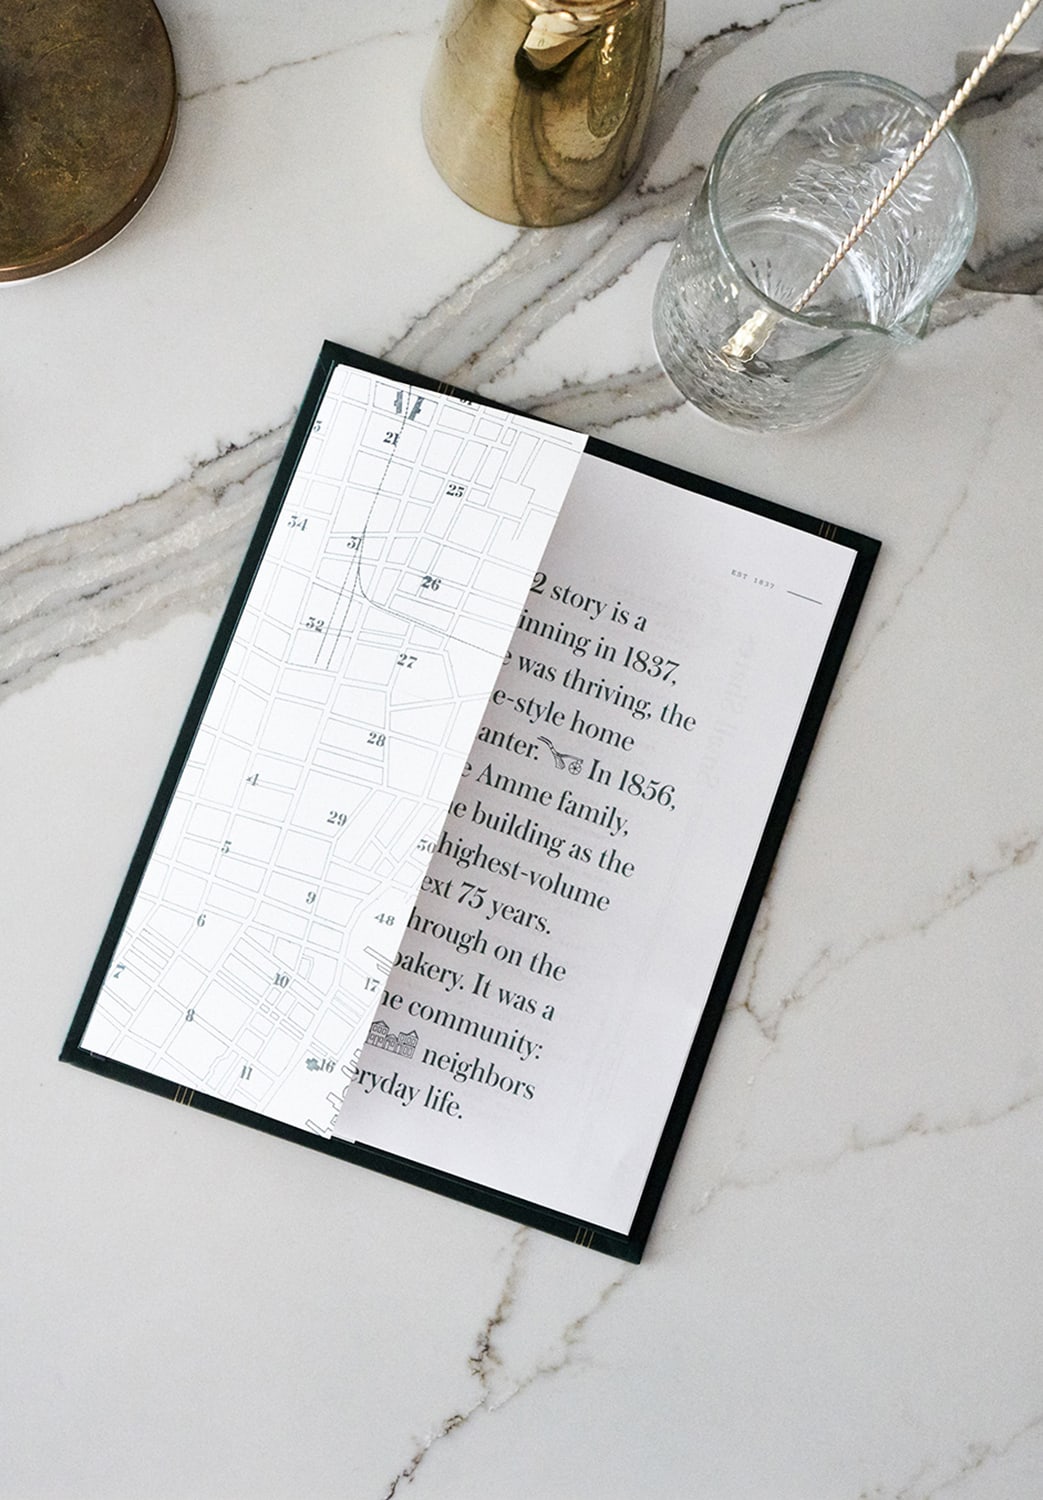 EST 1837
2 story is a
inning in 1837,
e was thriving, the
e-style home
anter. In 1856,
e Amme family,
e building as the
highest-volume
ext 75 years.
hrough on the
bakery. It was a
he community:
neighbors
eryday life.
21
25
34
31
26
32
27
28
4
29
5
9
48
6
7
10
17
8
11
16